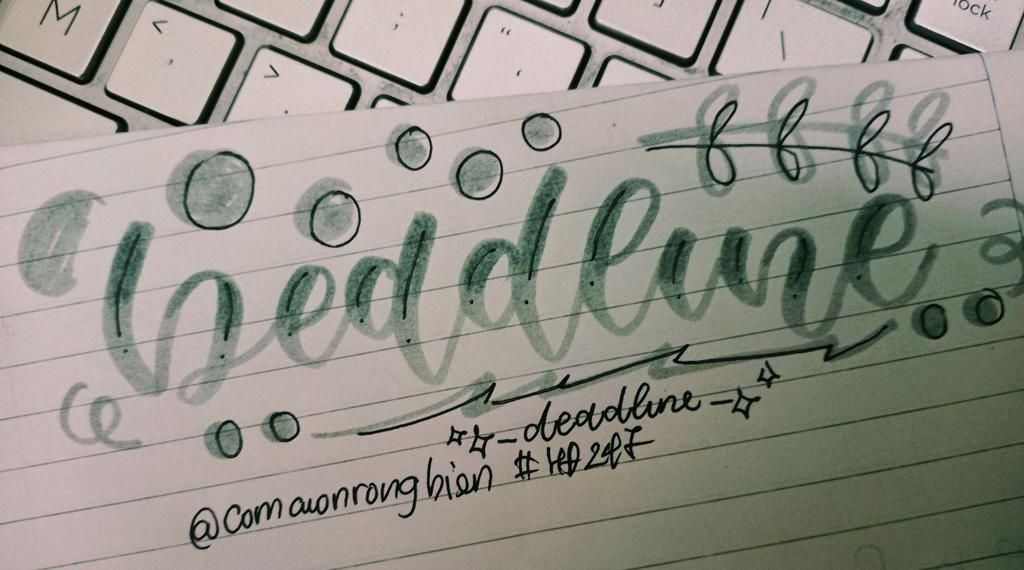 M < , > . : ; " ' lock
headline
- deadline -
@comauonrongbien